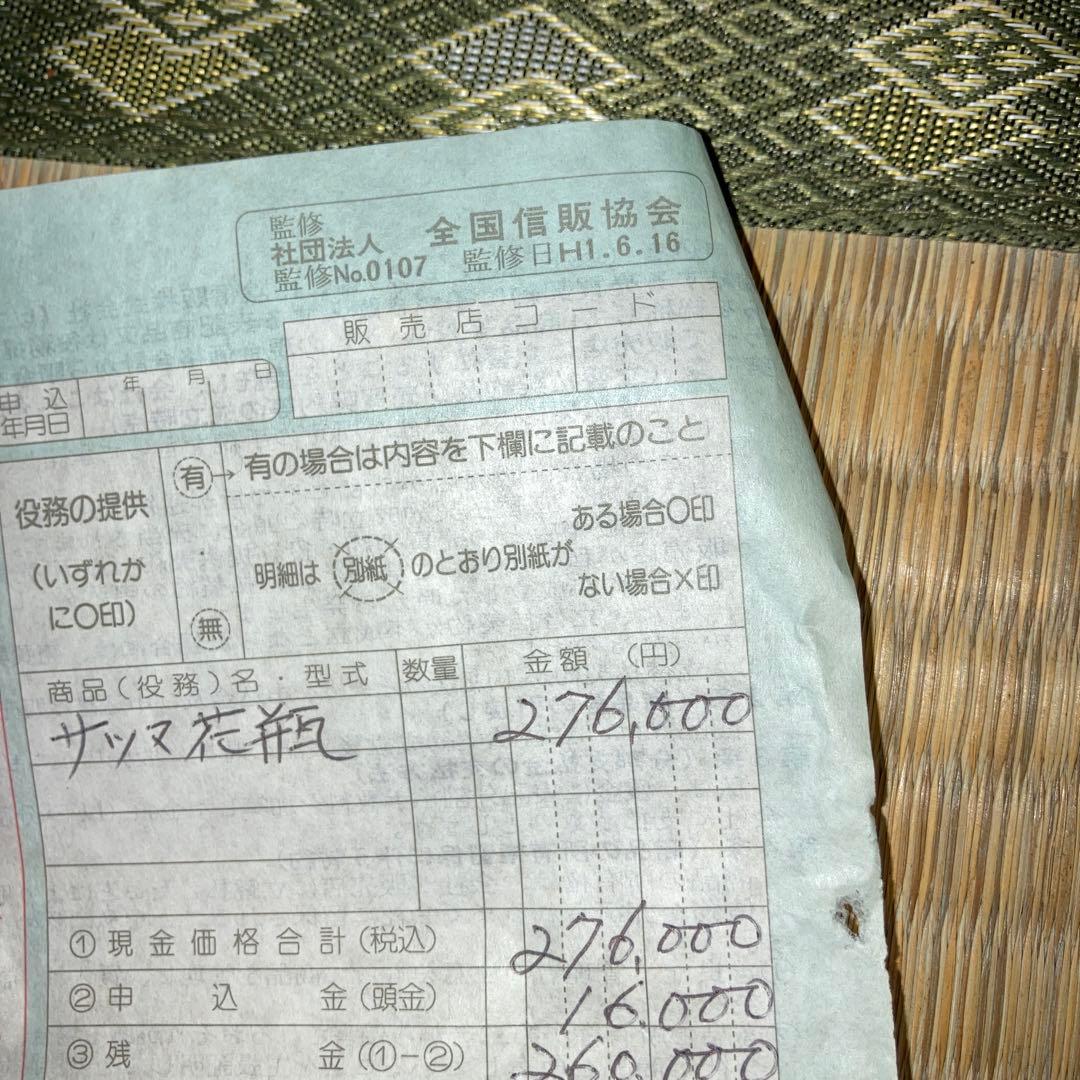 監修
社団法人 全国信販協会
監修No.0107 監修日H1.6.16
販売店コード
申込年月日 年 月 日
役務の提供
(いずれかに○印)
有
・
無
→有の場合は内容を下欄に記載のこと
明細は 別紙 のとおり別紙が
ある場合○印
ない場合×印
商品(役務)名・型式 数量 金額 (円)
サツマ花瓶 276,000
①現金価格合計(税込) 276,000
②申込金(頭金) 16,000
③残金(①-②) 260,000